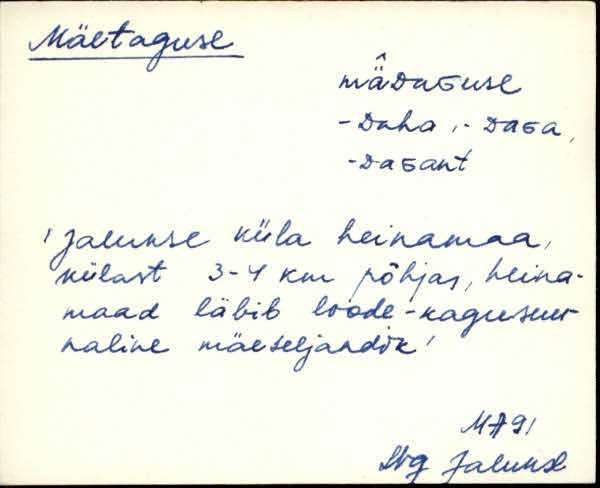 Mäetaguse
mä̂DaGuse
-Daha, -DaGa,
-DaGant
'Jalukse küla heinamaa,
külast 3-4 km põhjas, heina-
maad läbib loode-kagusuu-
naline mäeseljandik'
MA91
Jalukse